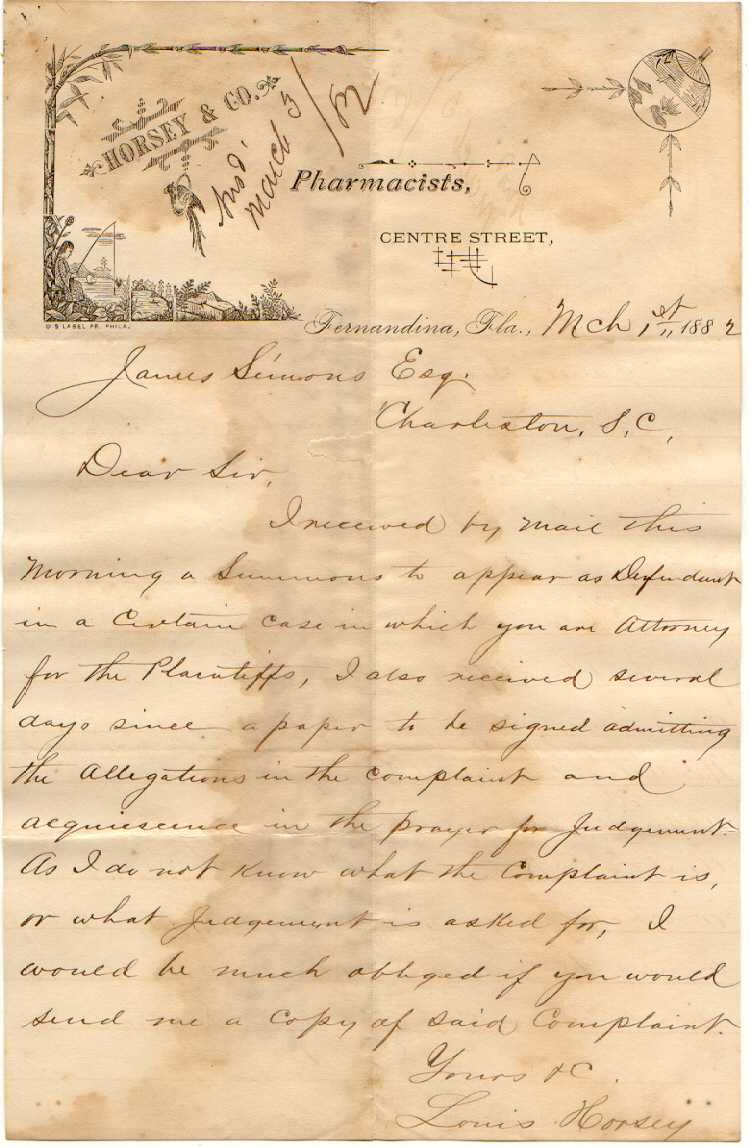 HORSEY & CO.
Ansd.
March 3/82
Pharmacists,
CENTRE STREET,
U S LABEL PR. PHILA.
Fernandina, Fla., Mch 1st 1882
James Simons Esq.
Charleston, S.C,
Dear Sir,
I received by mail this
Morning a Summons to appear as Defendant
in a Certain Case in which you are Attorney
for the Plaintiffs, I also received several
days since a paper to be signed admitting
the Allegations in the Complaint and
acquiescence in the prayer for Judgement.
As I do not Know what the Complaint is,
or what Judgement is asked for, I
would be much obliged if you would
send me a Copy of said Complaint.
Yours &C.
Louis Horsey